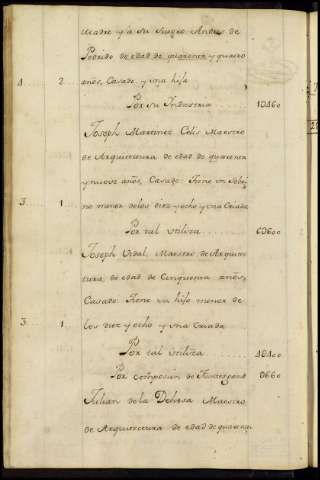 Madre y a su Suegro Andres de
Pedrido de edad de quarenta y quatro
4 2 años, Casado y una hija
Por su Industria 1D460
Joseph Martinez Celis Maestro
de Arquitectura de edad de quarenta
y nueve años, Casado. Tiene un Sobri
3 1 no menor de los diez y ocho y una Criada
Por tal utiliza 6D600
Joseph Vidal, Maestro de Arquitec
tura, de edad de Cinquenta años,
Casado. Tiene un hijo menor de
3 1 los diez y ocho y una Criada
Por tal utiliza 4D400
Por composizn de 0660
Julian de la Dehesa Maestro
de Arquitectura de edad de quarenta